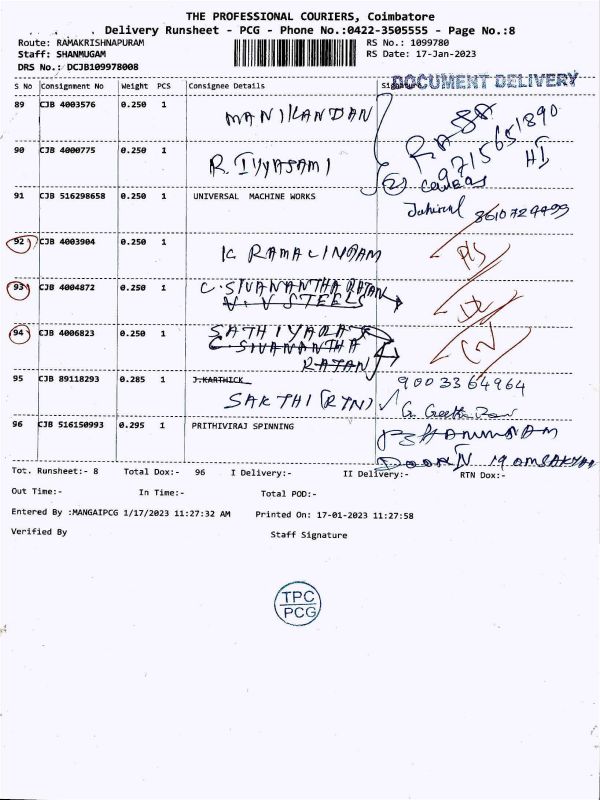 THE PROFESSIONAL COURIERS, Coimbatore
Delivery Runsheet - PCG - Phone No.:0422-3505555 - Page No.:8
Route: RAMAKRISHNAPURAM RS No.: 1099780
Staff: SHANMUGAM RS Date: 17-Jan-2023
DRS No.: DCJB109978008
DOCUMENT DELIVERY
S No Consignment No Weight PCS Consignee Details
89 CJB 4003576 0.250 1 MANIKANDAN
90 CJB 4000775 0.250 1 R. IYYASAMI
9715651890
91 CJB 516298658 0.250 1 UNIVERSAL MACHINE WORKS
8610729499
92 CJB 4003904 0.250 1 K RAMALINGAM
93 CJB 4004872 0.250 1 C. SIVANANTHA RATAN
V. V STEELS
94 CJB 4006823 0.250 1
C SIVANANTHA
RATAN
95 CJB 89118293 0.285 1 J.KARTHICK 9003364964
SAKTHI (RTN)
96 CJB 516150993 0.295 1 PRITHIVIRAJ SPINNING
Tot. Runsheet:- 8 Total Dox:- 96 I Delivery:- II Delivery:- RTN Dox:-
Out Time:- In Time:- Total POD:-
Entered By :MANGAIPCG 1/17/2023 11:27:32 AM Printed On: 17-01-2023 11:27:58
Verified By Staff Signature
TPC
PCG